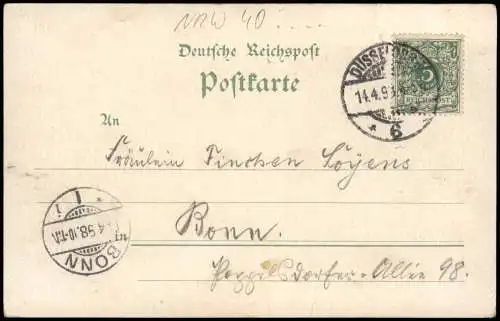 NRW 40 ....
Deutsche Reichspost
Postkarte
DÜSSELDORF
14.4.98
* 6
5
REICHSPOST
An
Fräulein Tinchen Löyens
in Bonn.
Poppelsdorfer-Allée 98.
BONN
.4.98.10-11
1